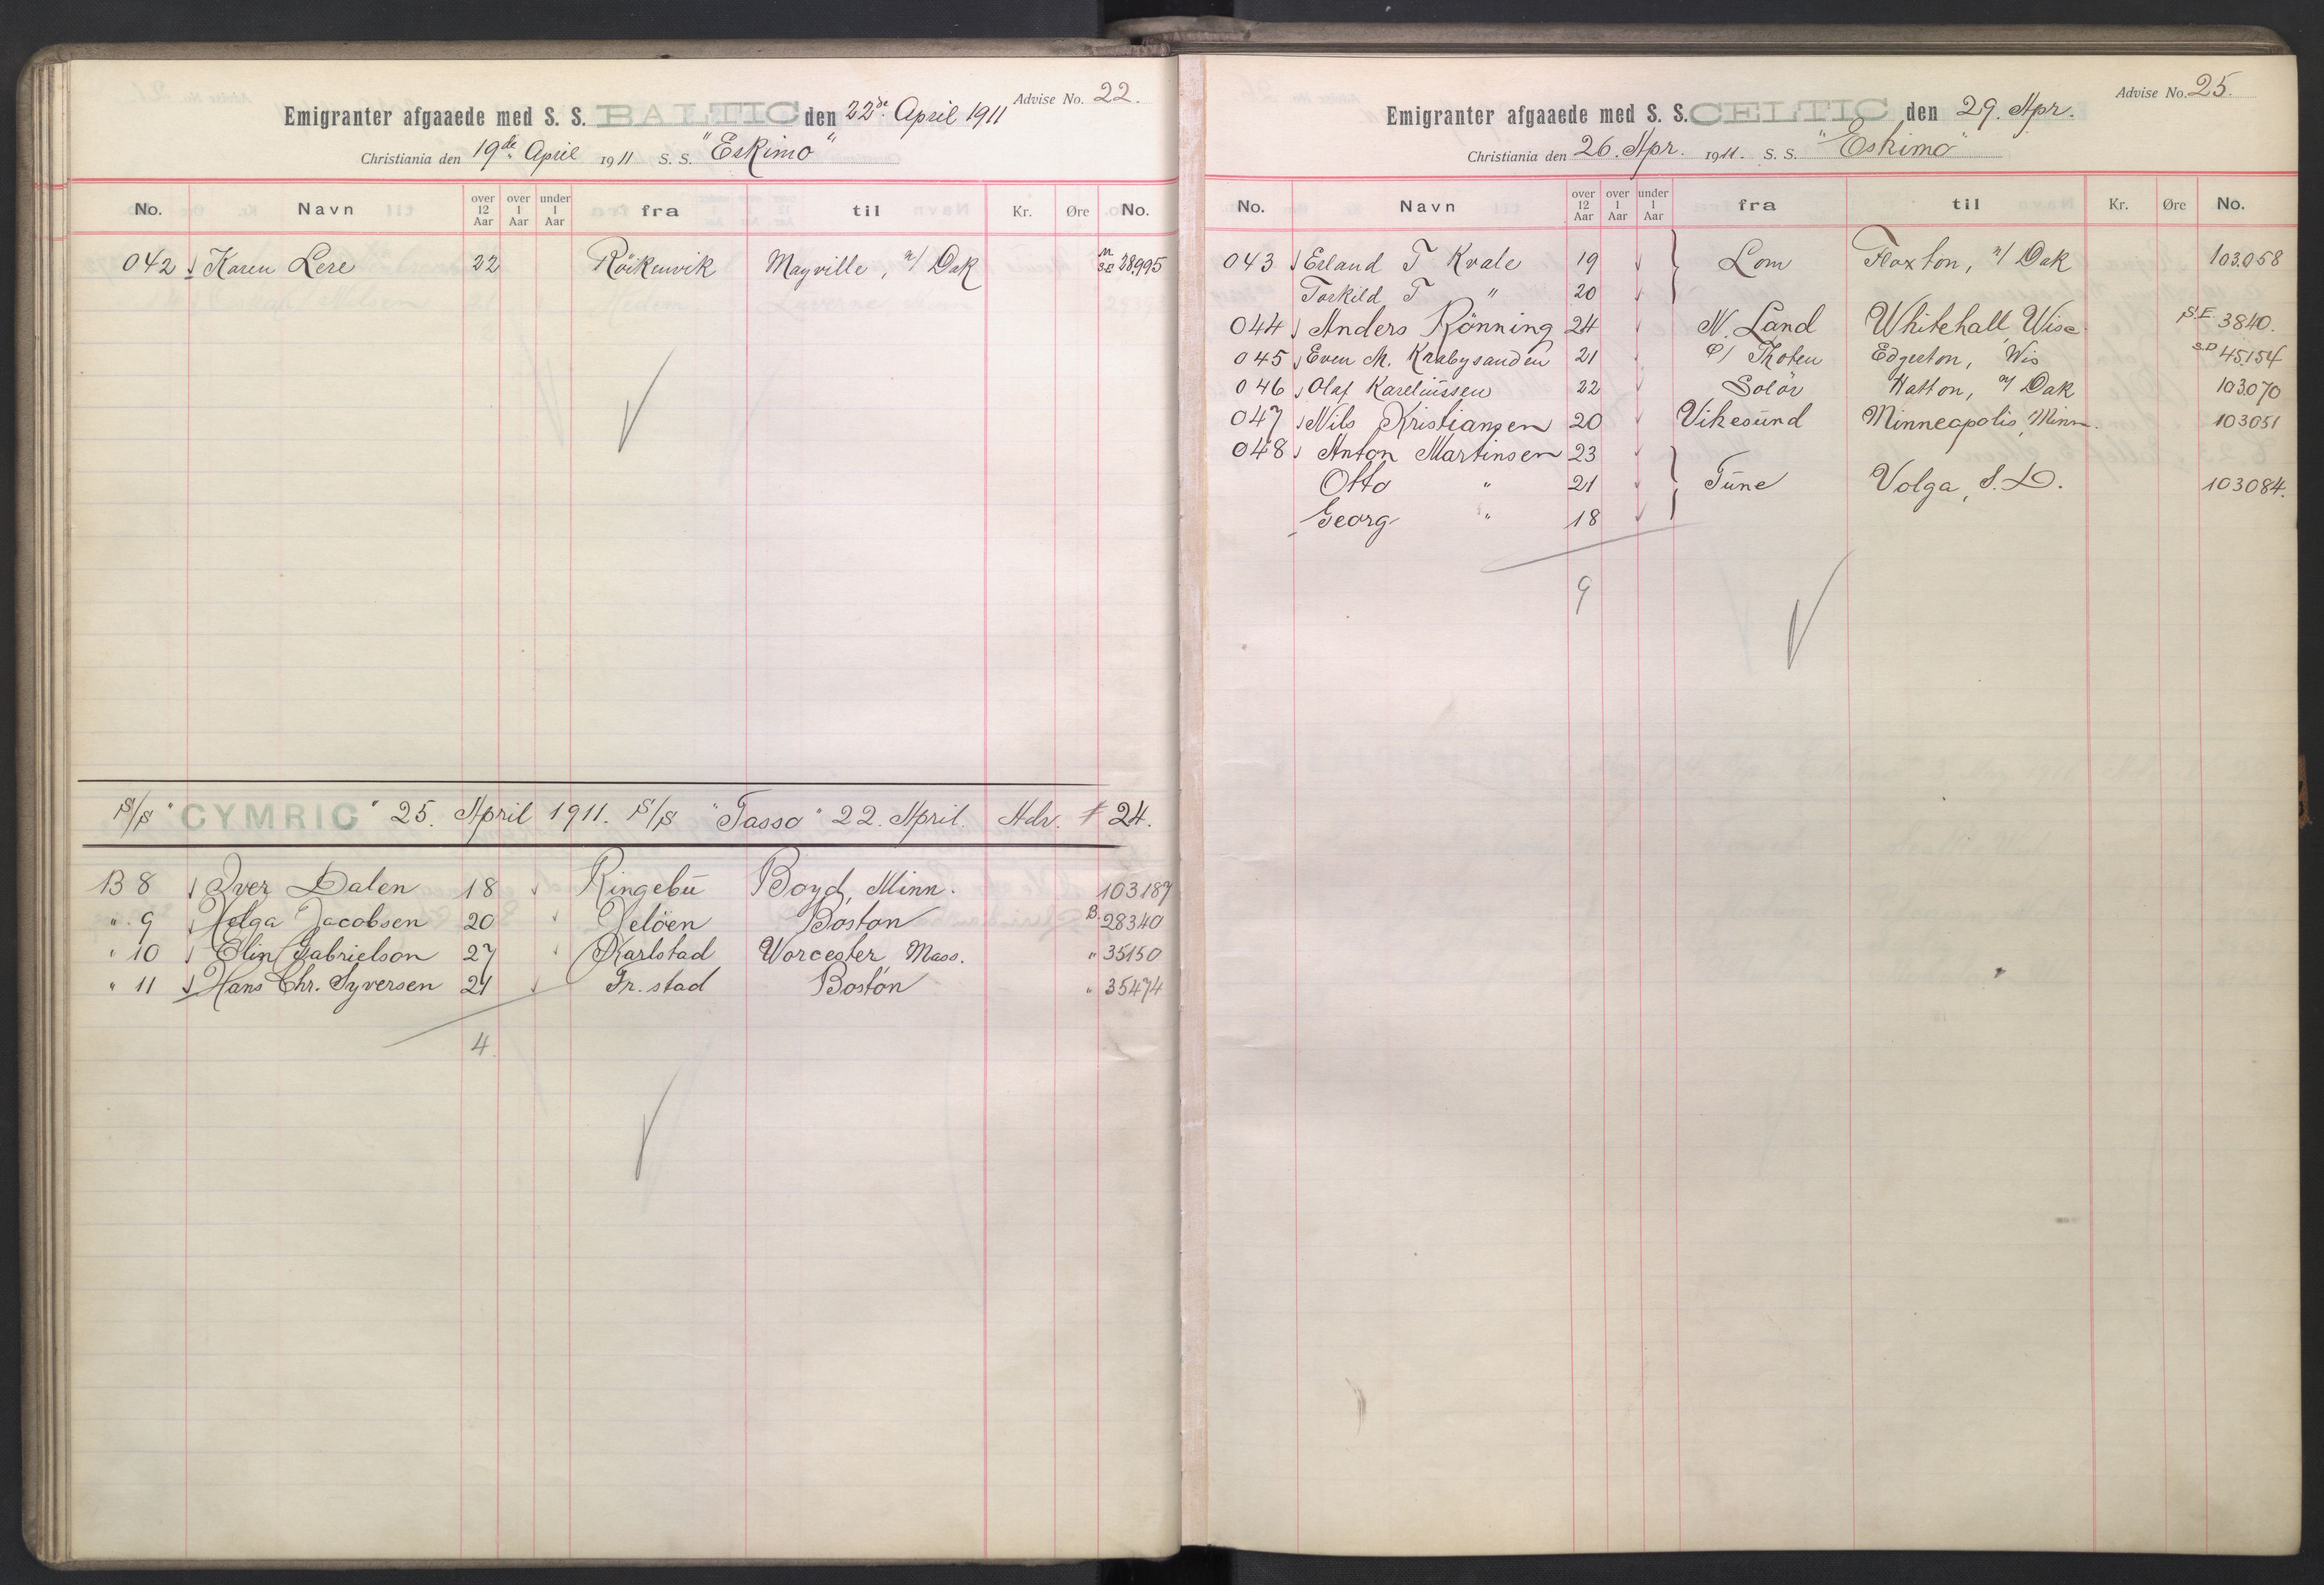 Advise No. 22.
Emigranter afgaaede med S. S. BALTIC den 22de April 1911
Christiania den 19de April 1911 S. S. "Eskimo"
No. Navn over 12 Aar over 1 Aar under 1 Aar fra til Kr. Øre No.
042 Karen Lere 22 Röikenvik Mayville, n/ Dak 28995
S/S "CYMRIC" 25. April 1911. S/S "Tasso" 22. April. Adv. # 24.
B 8 Iver Dalen 18 Ringebu Boyd, Minn. 103187
" 9 Helga Jacobsen 20 Jelöen Boston B. 28340
" 10 Elin Gabrielson 27 Karlstad Worcester Mass. " 35150
" 11 Hans Chr. Syversen 21 Fr. stad Boston " 35474
4
Advise No. 25.
Emigranter afgaaede med S. S. CELTIC den 29. Apr.
Christiania den 26. Apr. 1911. S. S. "Eskimo"
No. Navn over 12 Aar over 1 Aar under 1 Aar fra til Kr. Øre No.
043 Erland T Kvale 19 Lom Floxton, n/ Dak 103058
Torkild T " 20
044 Anders Rönning 24 N. Land Whitehall, Wisc. S.E. 3840.
045 Even M. Krabysanden 21 Ø/ Thoten Edgerton, Wis S.D 45154
046 Olaf Kareliussen 22 Solör Hatton, n/ Dak 103070
047 Nils Kristiansen 20 Vikesund Minneapolis, Minn. 103051
048 Anton Martinsen 23
Otto " 21 Tune Volga, S. D. 103084.
Georg " 18
9